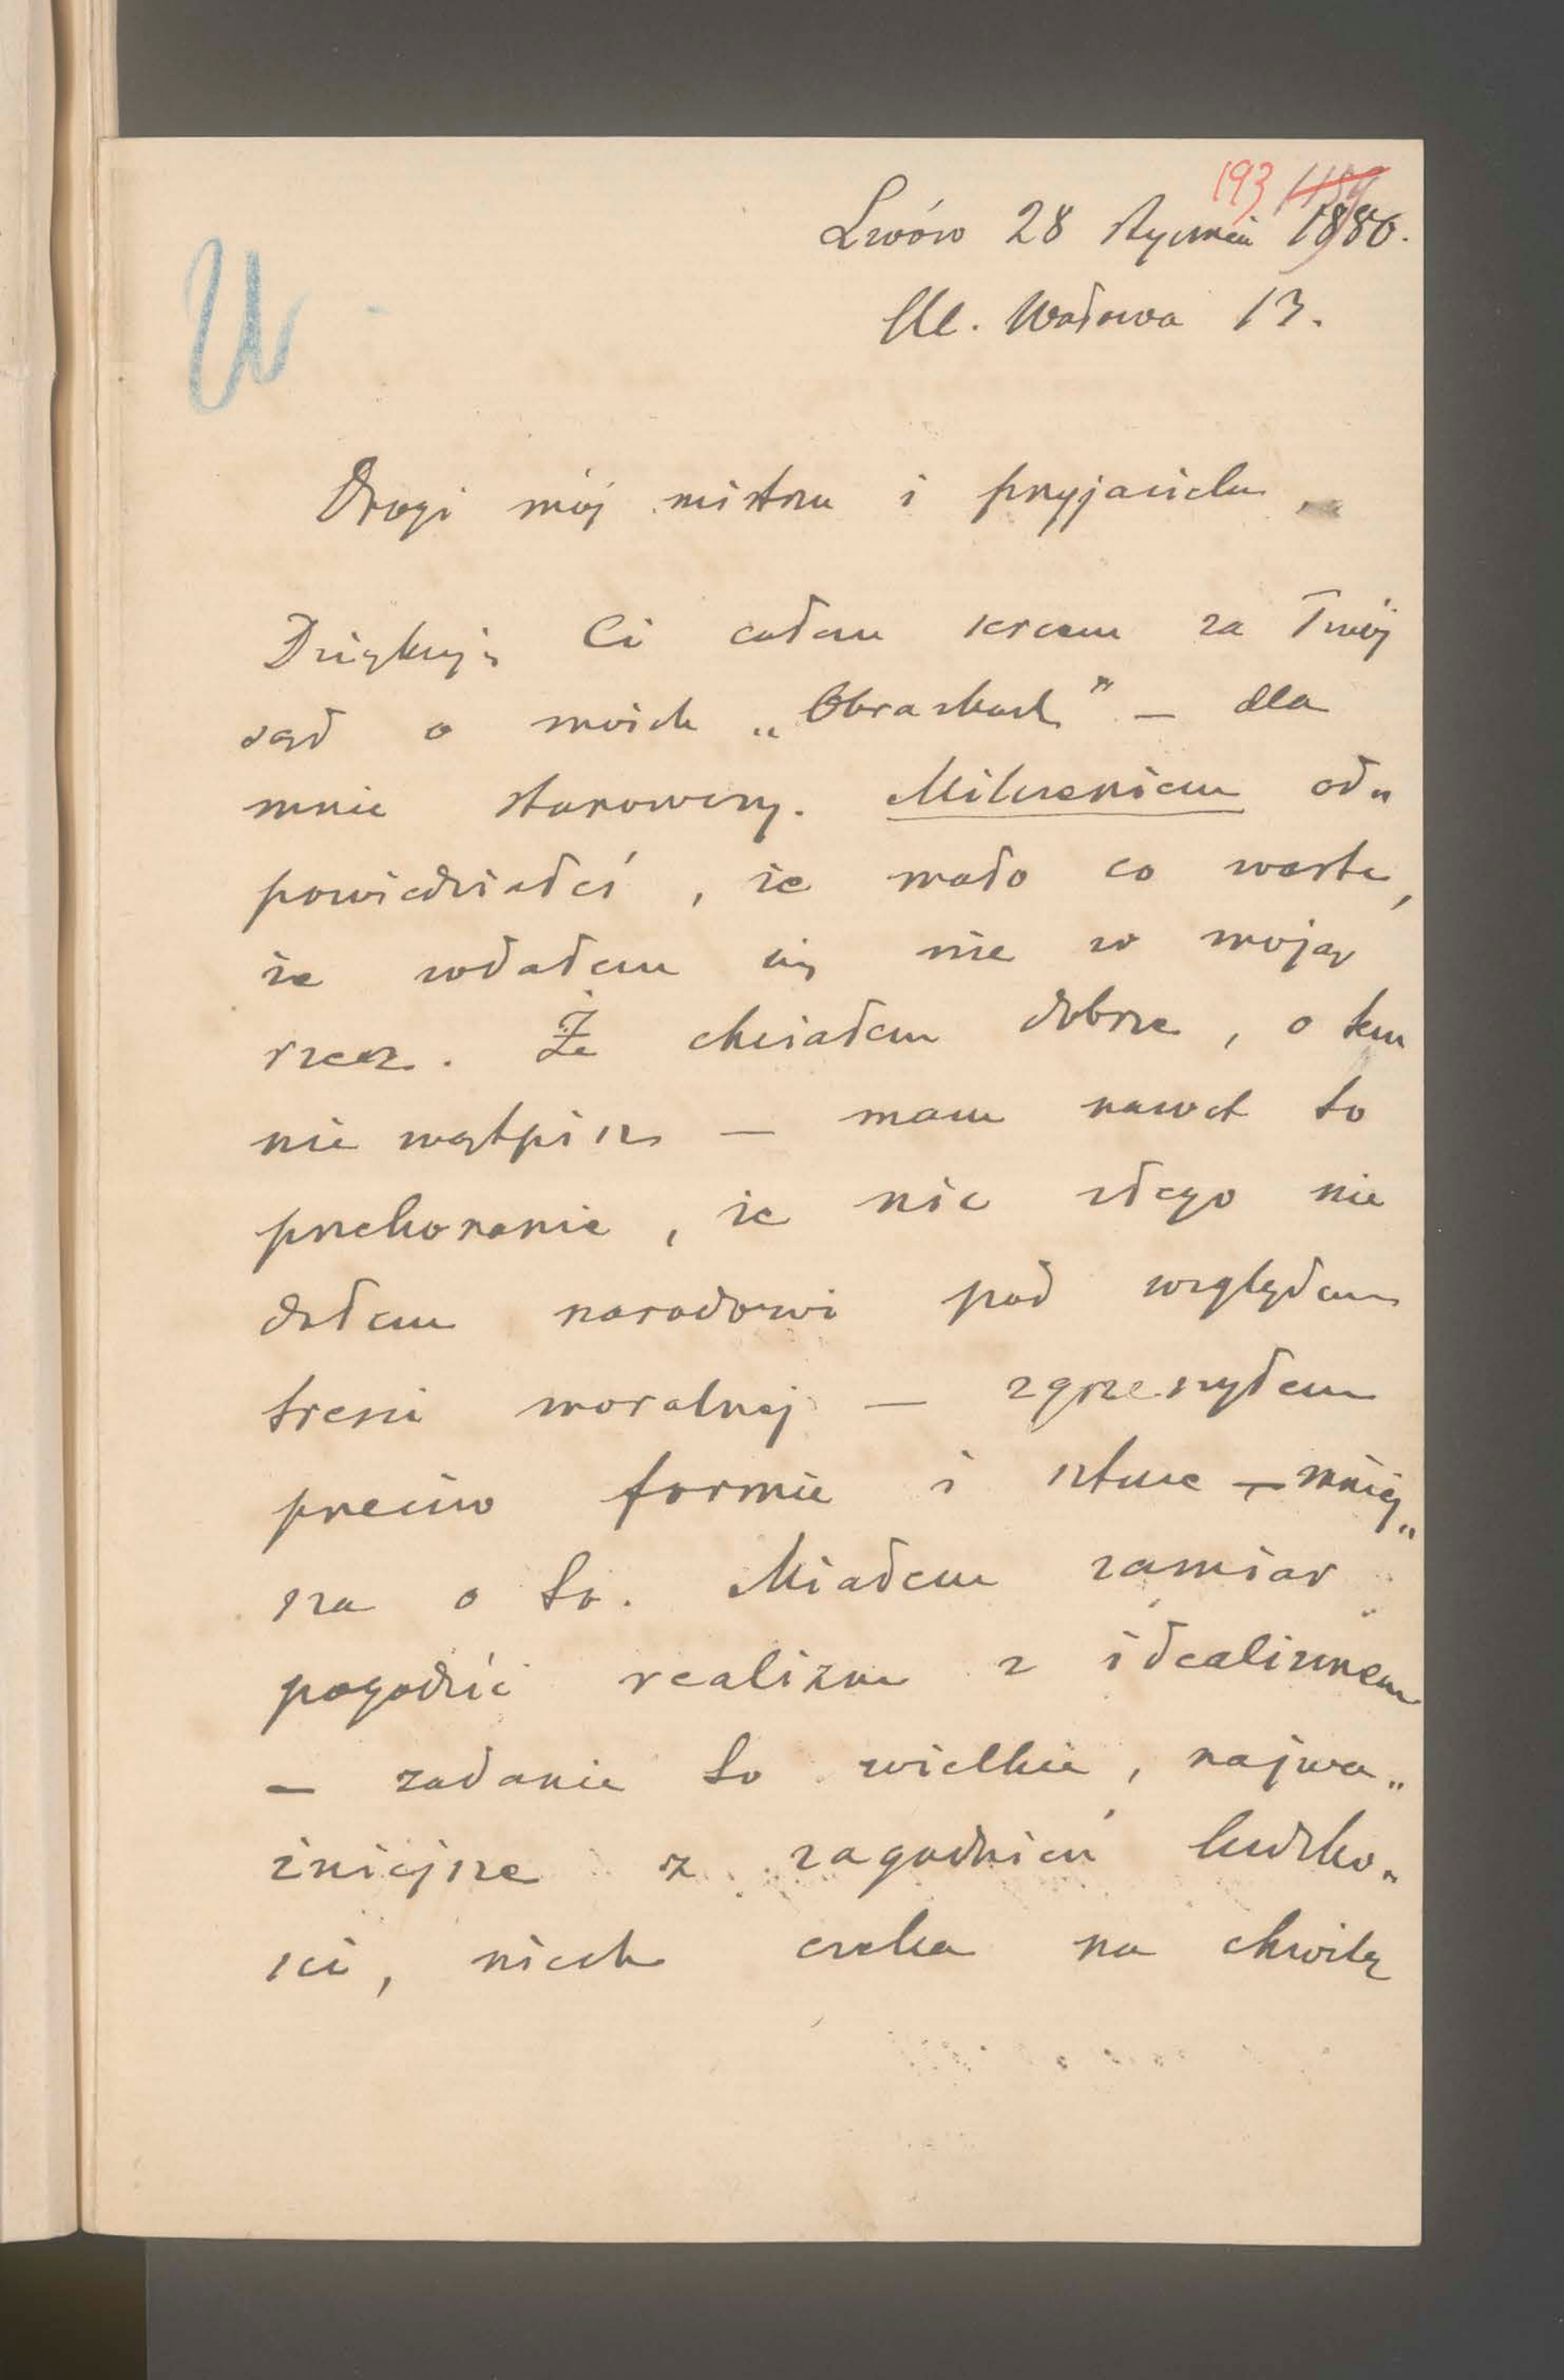 193 1154
Lwów 28 Stycznia 1886.
Ul. Wałowa 13.
U
Drogi mój mistrzu i przyjacielu,
Dziękuję Ci całem sercem za Twój
sąd o moich „Obrazkach” — dla
mnie stanowczy. Milczeniem od„
powiedziałeś, że mało co warte,
że wdałem się nie w moją
rzecz. Że chciałem dobrze, o tem
nie wątpisz — mam nawet to
przekonanie, że nic złego nie
dałem narodowi pod względem
treści moralnej — zgrzeszyłem
przeciw formie i sztuce — mniej„
sza o to. Miałem zamiar
pogodzić realizm z idealizmem
— zadanie to wielkie, najwa„
żniejsze z zagadnień ludzko„
ści, niech czeka na chwilę